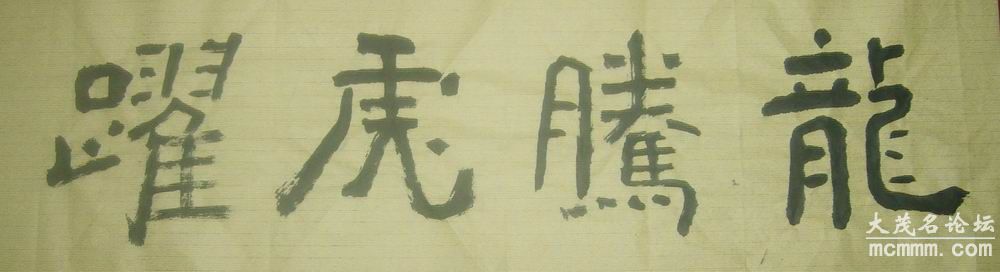 龍騰虎躍
大茂名论坛
mcmmm.com